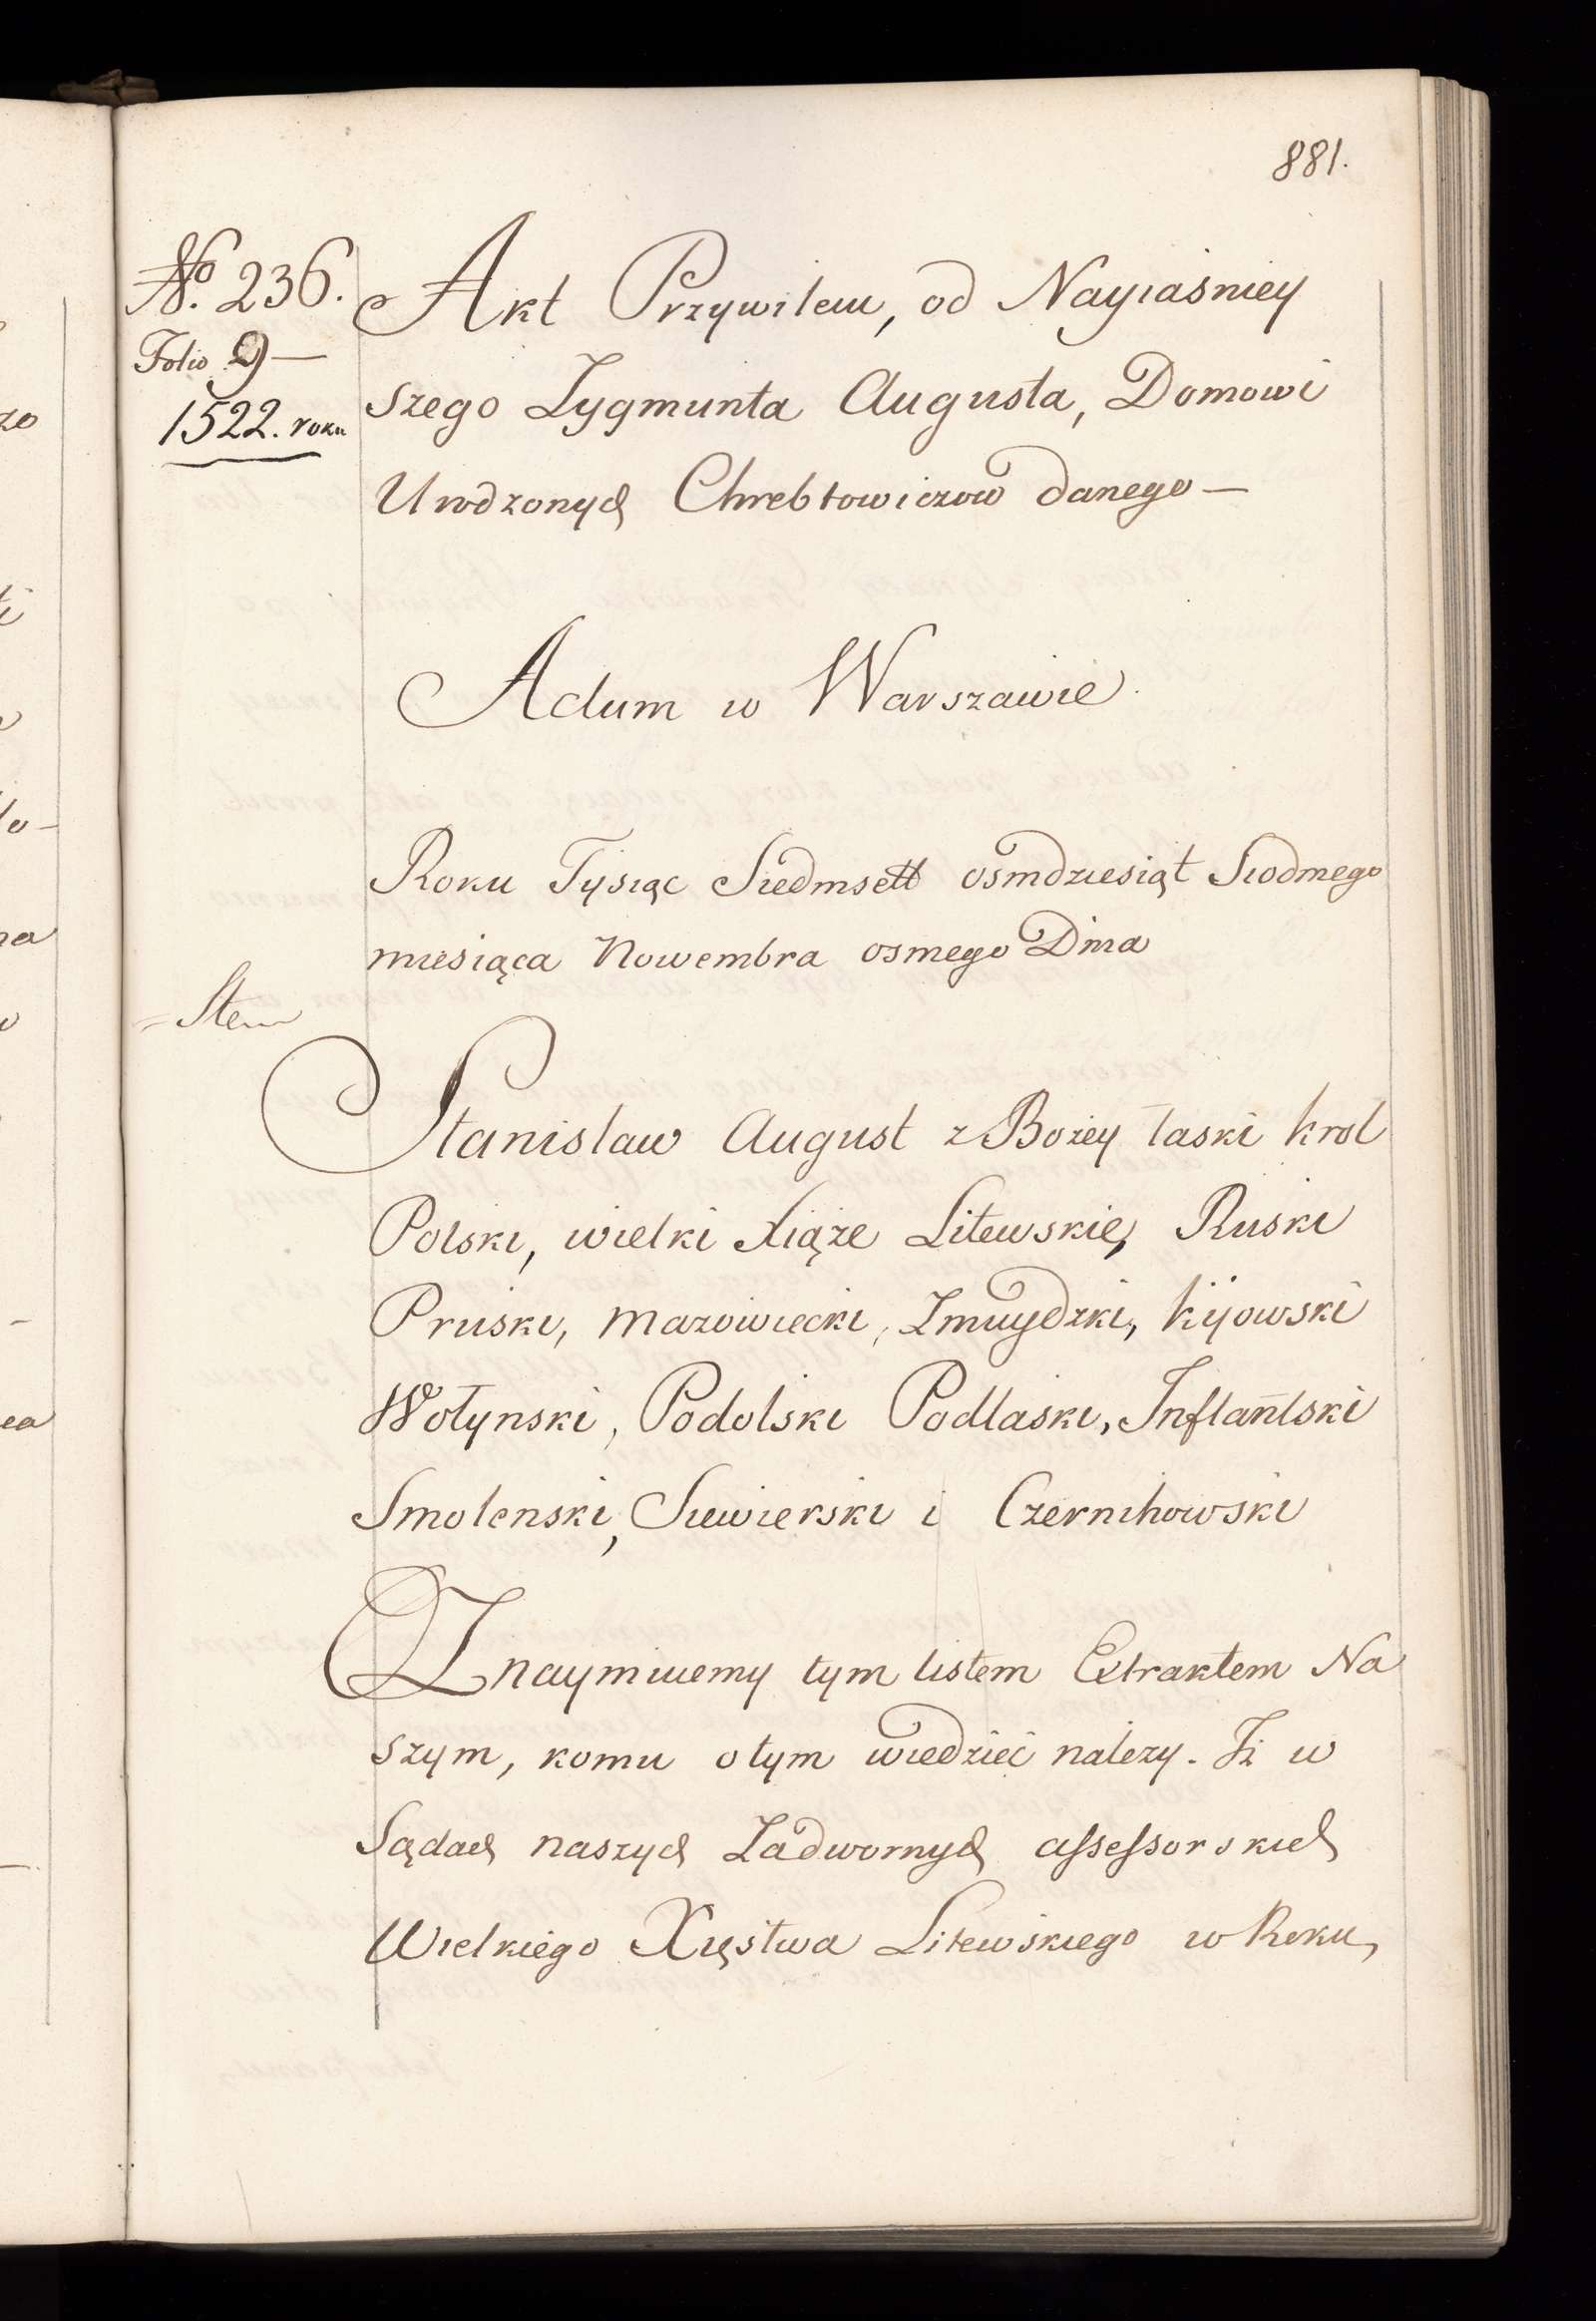 881.
No. 236.
Folio 9 —
1522. roku
Akt Przywileiu, od Nayiaśniey
szego Zygmunta Augusta, Domowi
Urodzonych Chrebtowiczow danego —
Actum w Warszawie.
Roku Tysiąc Siedmsett osmdziesiąt Siodmego
miesiąca Nowembra osmego Dnia
Stanislaw August z Bożey łaski krol
Polski, wielki Xiąże Litewskie, Ruski
Pruski, Mazowiecki, Zmuydzki, kijowski
Wołynski, Podolski Podlaski, Inflantski
Smolenski, Siewierski i Czernihowski
OZnaymuiemy tym listem Extraktem Na
szym, komu o tym wiedzieć należy. Iż w
Sądach naszych Zadwornych assessorskich
Wielkiego Xięstwa Litewskiego w Roku,